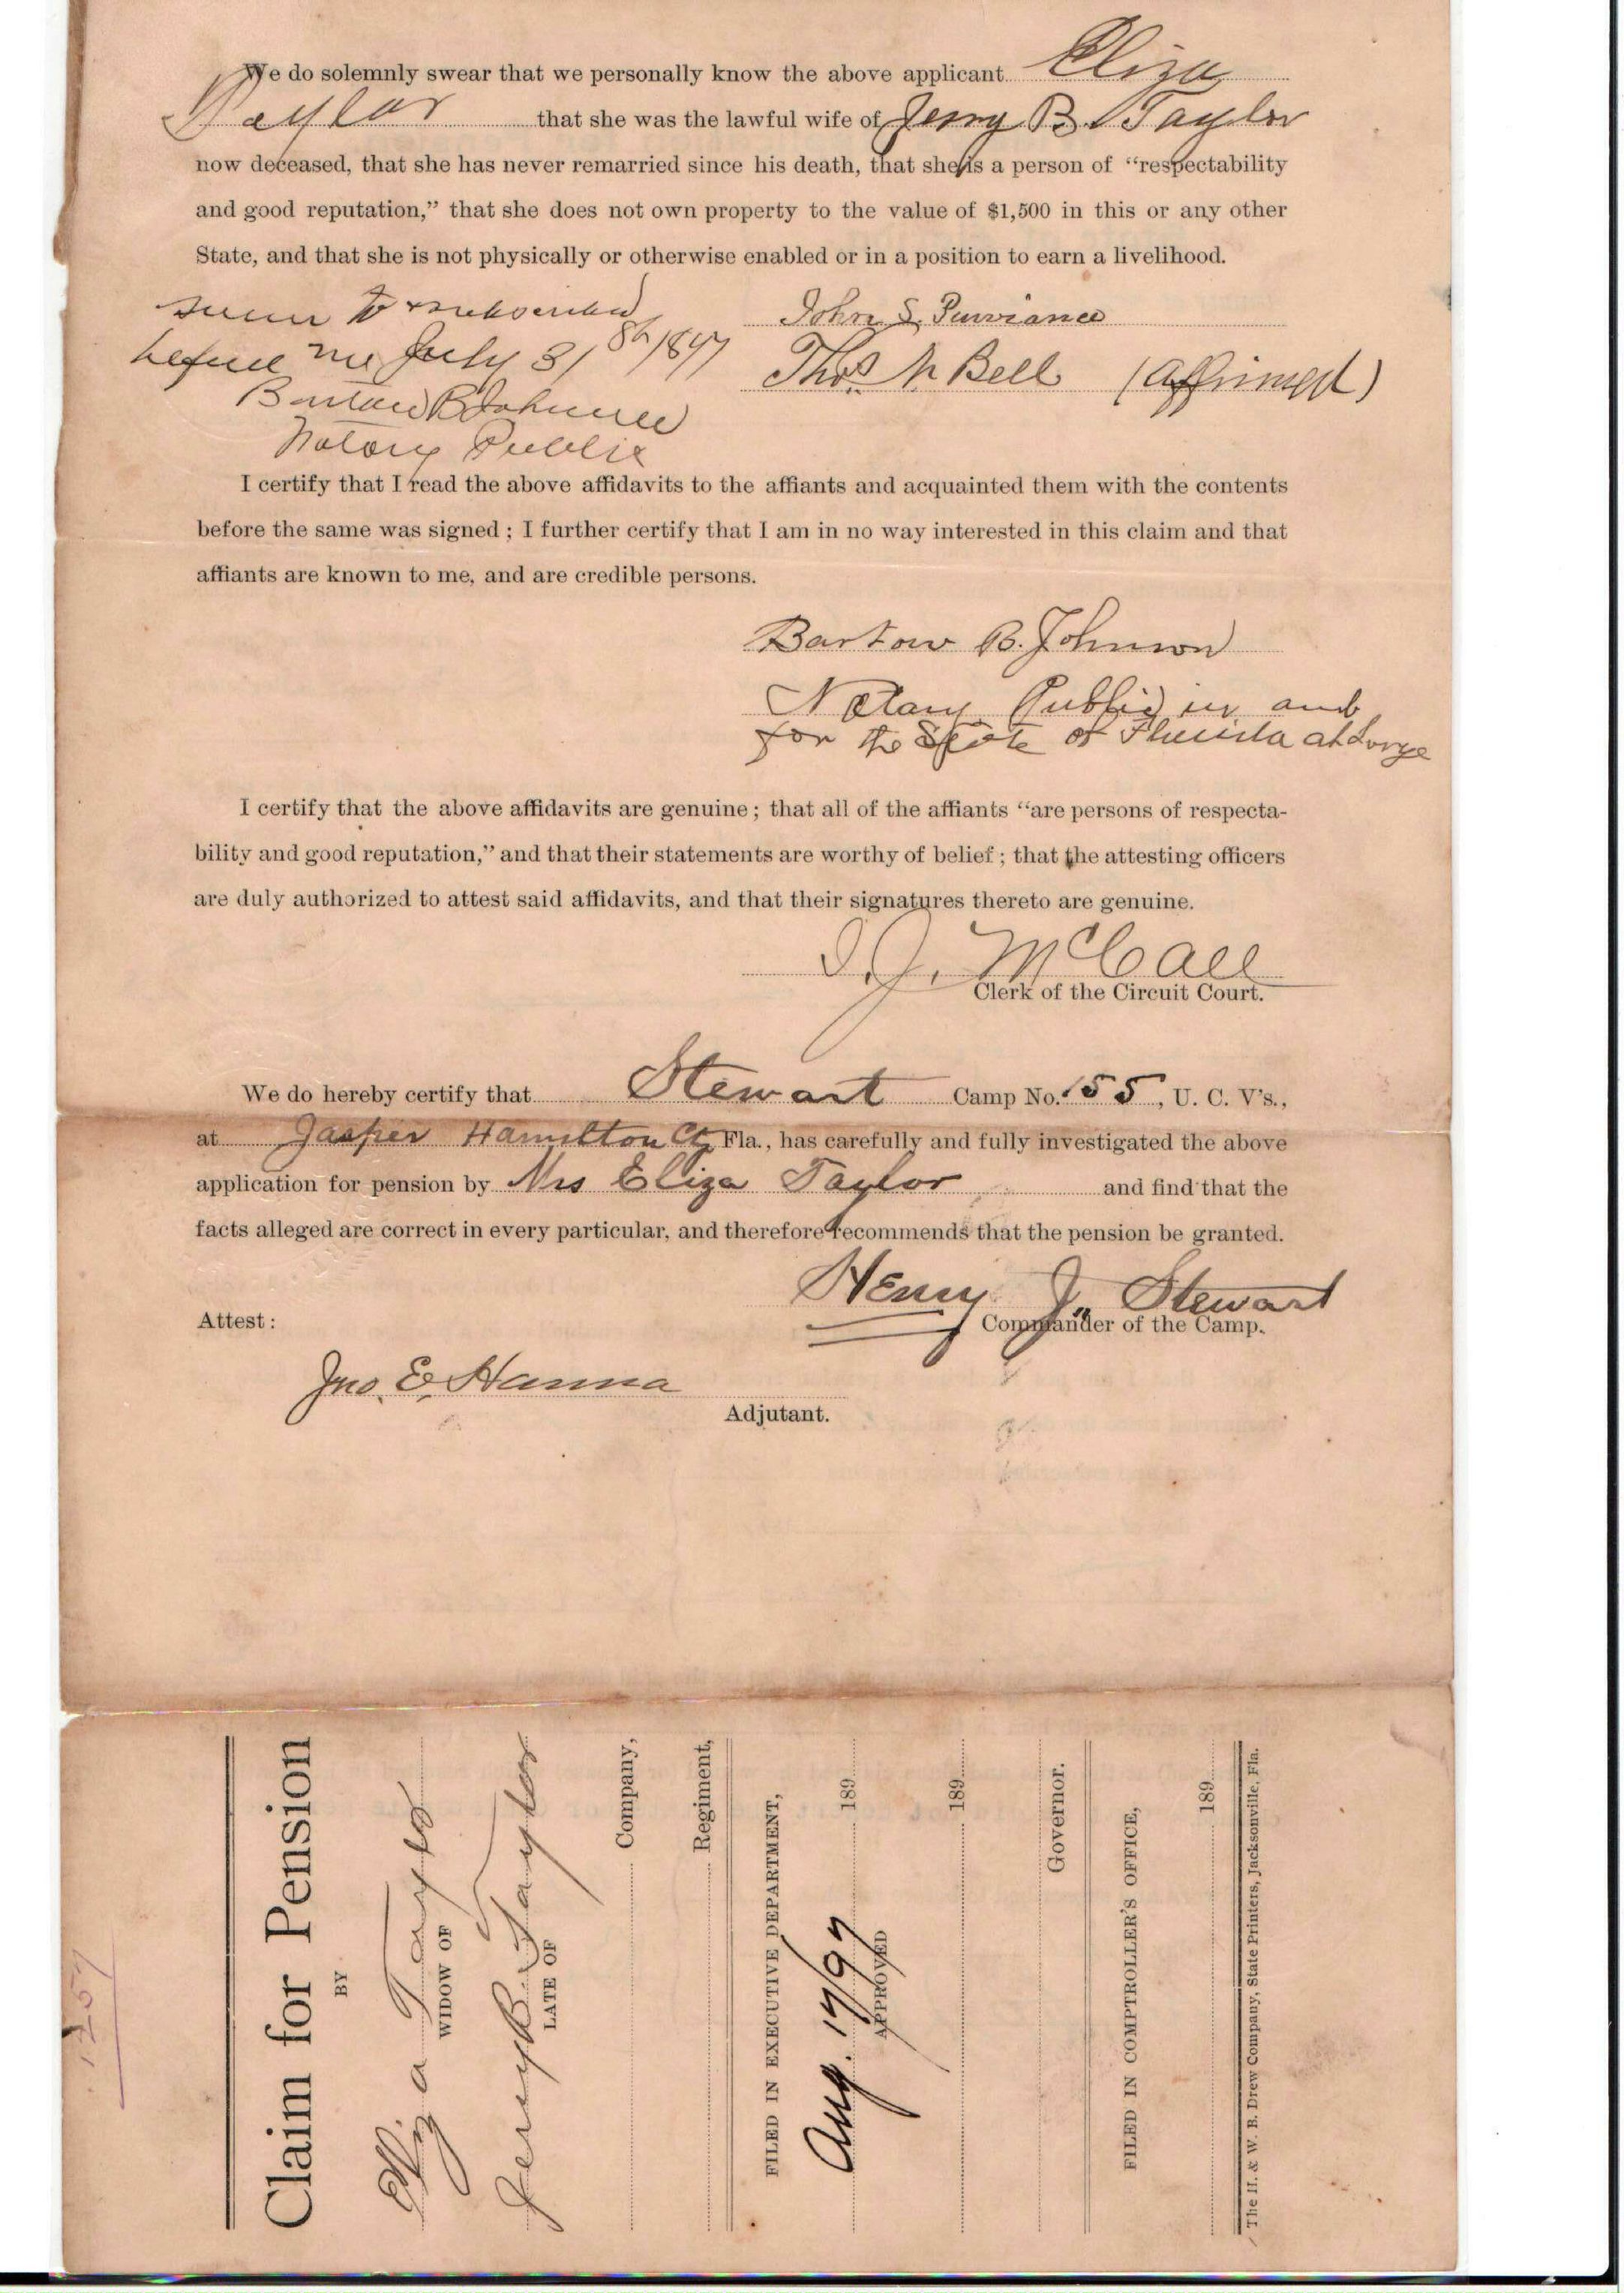 We do solemnly swear that we personally know the above applicant Eliza
Taylor that she was the lawful wife of Jerry B. Taylor
now deceased, that she has never remarried since his death, that she is a person of “respectability
and good reputation,” that she does not own property to the value of $1,500 in this or any other
State, and that she is not physically or otherwise enabled or in a position to earn a livelihood.
John S. Purviance
Thos. M Bell (affirmed)
sworn to & subscribed
before me July 31st 1897
Bartow B Johnson
Notary Public
I certify that I read the above affidavits to the affiants and acquainted them with the contents
before the same was signed ; I further certify that I am in no way interested in this claim and that
affiants are known to me, and are credible persons.
Bartow B. Johnson
Notary Public in and
for the State of Florida at Large
I certify that the above affidavits are genuine ; that all of the affiants “are persons of respecta-
bility and good reputation,” and that their statements are worthy of belief ; that the attesting officers
are duly authorized to attest said affidavits, and that their signatures thereto are genuine.
J. McCall
Clerk of the Circuit Court.
We do hereby certify that Stewart Camp No. 155, U. C. V’s.,
at Jasper Hamilton Ct Fla., has carefully and fully investigated the above
application for pension by Mrs Eliza Taylor and find that the
facts alleged are correct in every particular, and therefore recommends that the pension be granted.
Henry J. Stewart
Commander of the Camp.
Attest :
Jno. E. Hanna
Adjutant.
Claim for Pension
BY
Eliza Taylor
WIDOW OF
Jerry B. Taylor
LATE OF
Company,
Regiment,
FILED IN EXECUTIVE DEPARTMENT,
Aug. 17/97 189
APPROVED
189
Governor.
FILED IN COMPTROLLER’S OFFICE,
189
The H. & W. B. Drew Company, State Printers, Jacksonville, Fla.